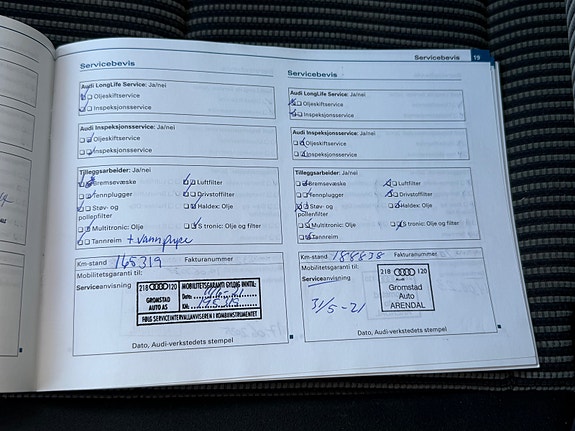 Servicebevis 19
Servicebevis
Audi LongLife Service: Ja/nei
Oljeskiftservice
Inspeksjonsservice
Audi Inspeksjonsservice: Ja/nei
Oljeskiftservice
Inspeksjonsservice
Tilleggsarbeider: Ja/nei
Bremsevæske Luftfilter
Tennplugger Drivstoffilter
Støv- og Haldex: Olje
pollenfilter
Multitronic: Olje S tronic: Olje og filter
Tannreim + vannpumpe
Km-stand 165319 Fakturanummer
Mobilitetsgaranti til:
Serviceanvisning
218 120
GROMSTAD
AUTO AS
MOBILITETSGARANTI GYLDIG INNTIL:
Dato:
KM:
FØLG SERVICEINTERVALLANVISEREN I KOMBIINSTRUMENTET
Dato, Audi-verkstedets stempel
Servicebevis
Audi LongLife Service: Ja/nei
Oljeskiftservice
Inspeksjonsservice
Audi Inspeksjonsservice: Ja/nei
Oljeskiftservice
Inspeksjonsservice
Tilleggsarbeider: Ja/nei
Bremsevæske Luftfilter
Tennplugger Drivstoffilter
Støv- og Haldex: Olje
pollenfilter
Multitronic: Olje S tronic: Olje og filter
Tannreim
Km-stand 188838 Fakturanummer
Mobilitetsgaranti til:
Serviceanvisning
31/5-21
218 120
Gromstad
Auto
ARENDAL
Dato, Audi-verkstedets stempel